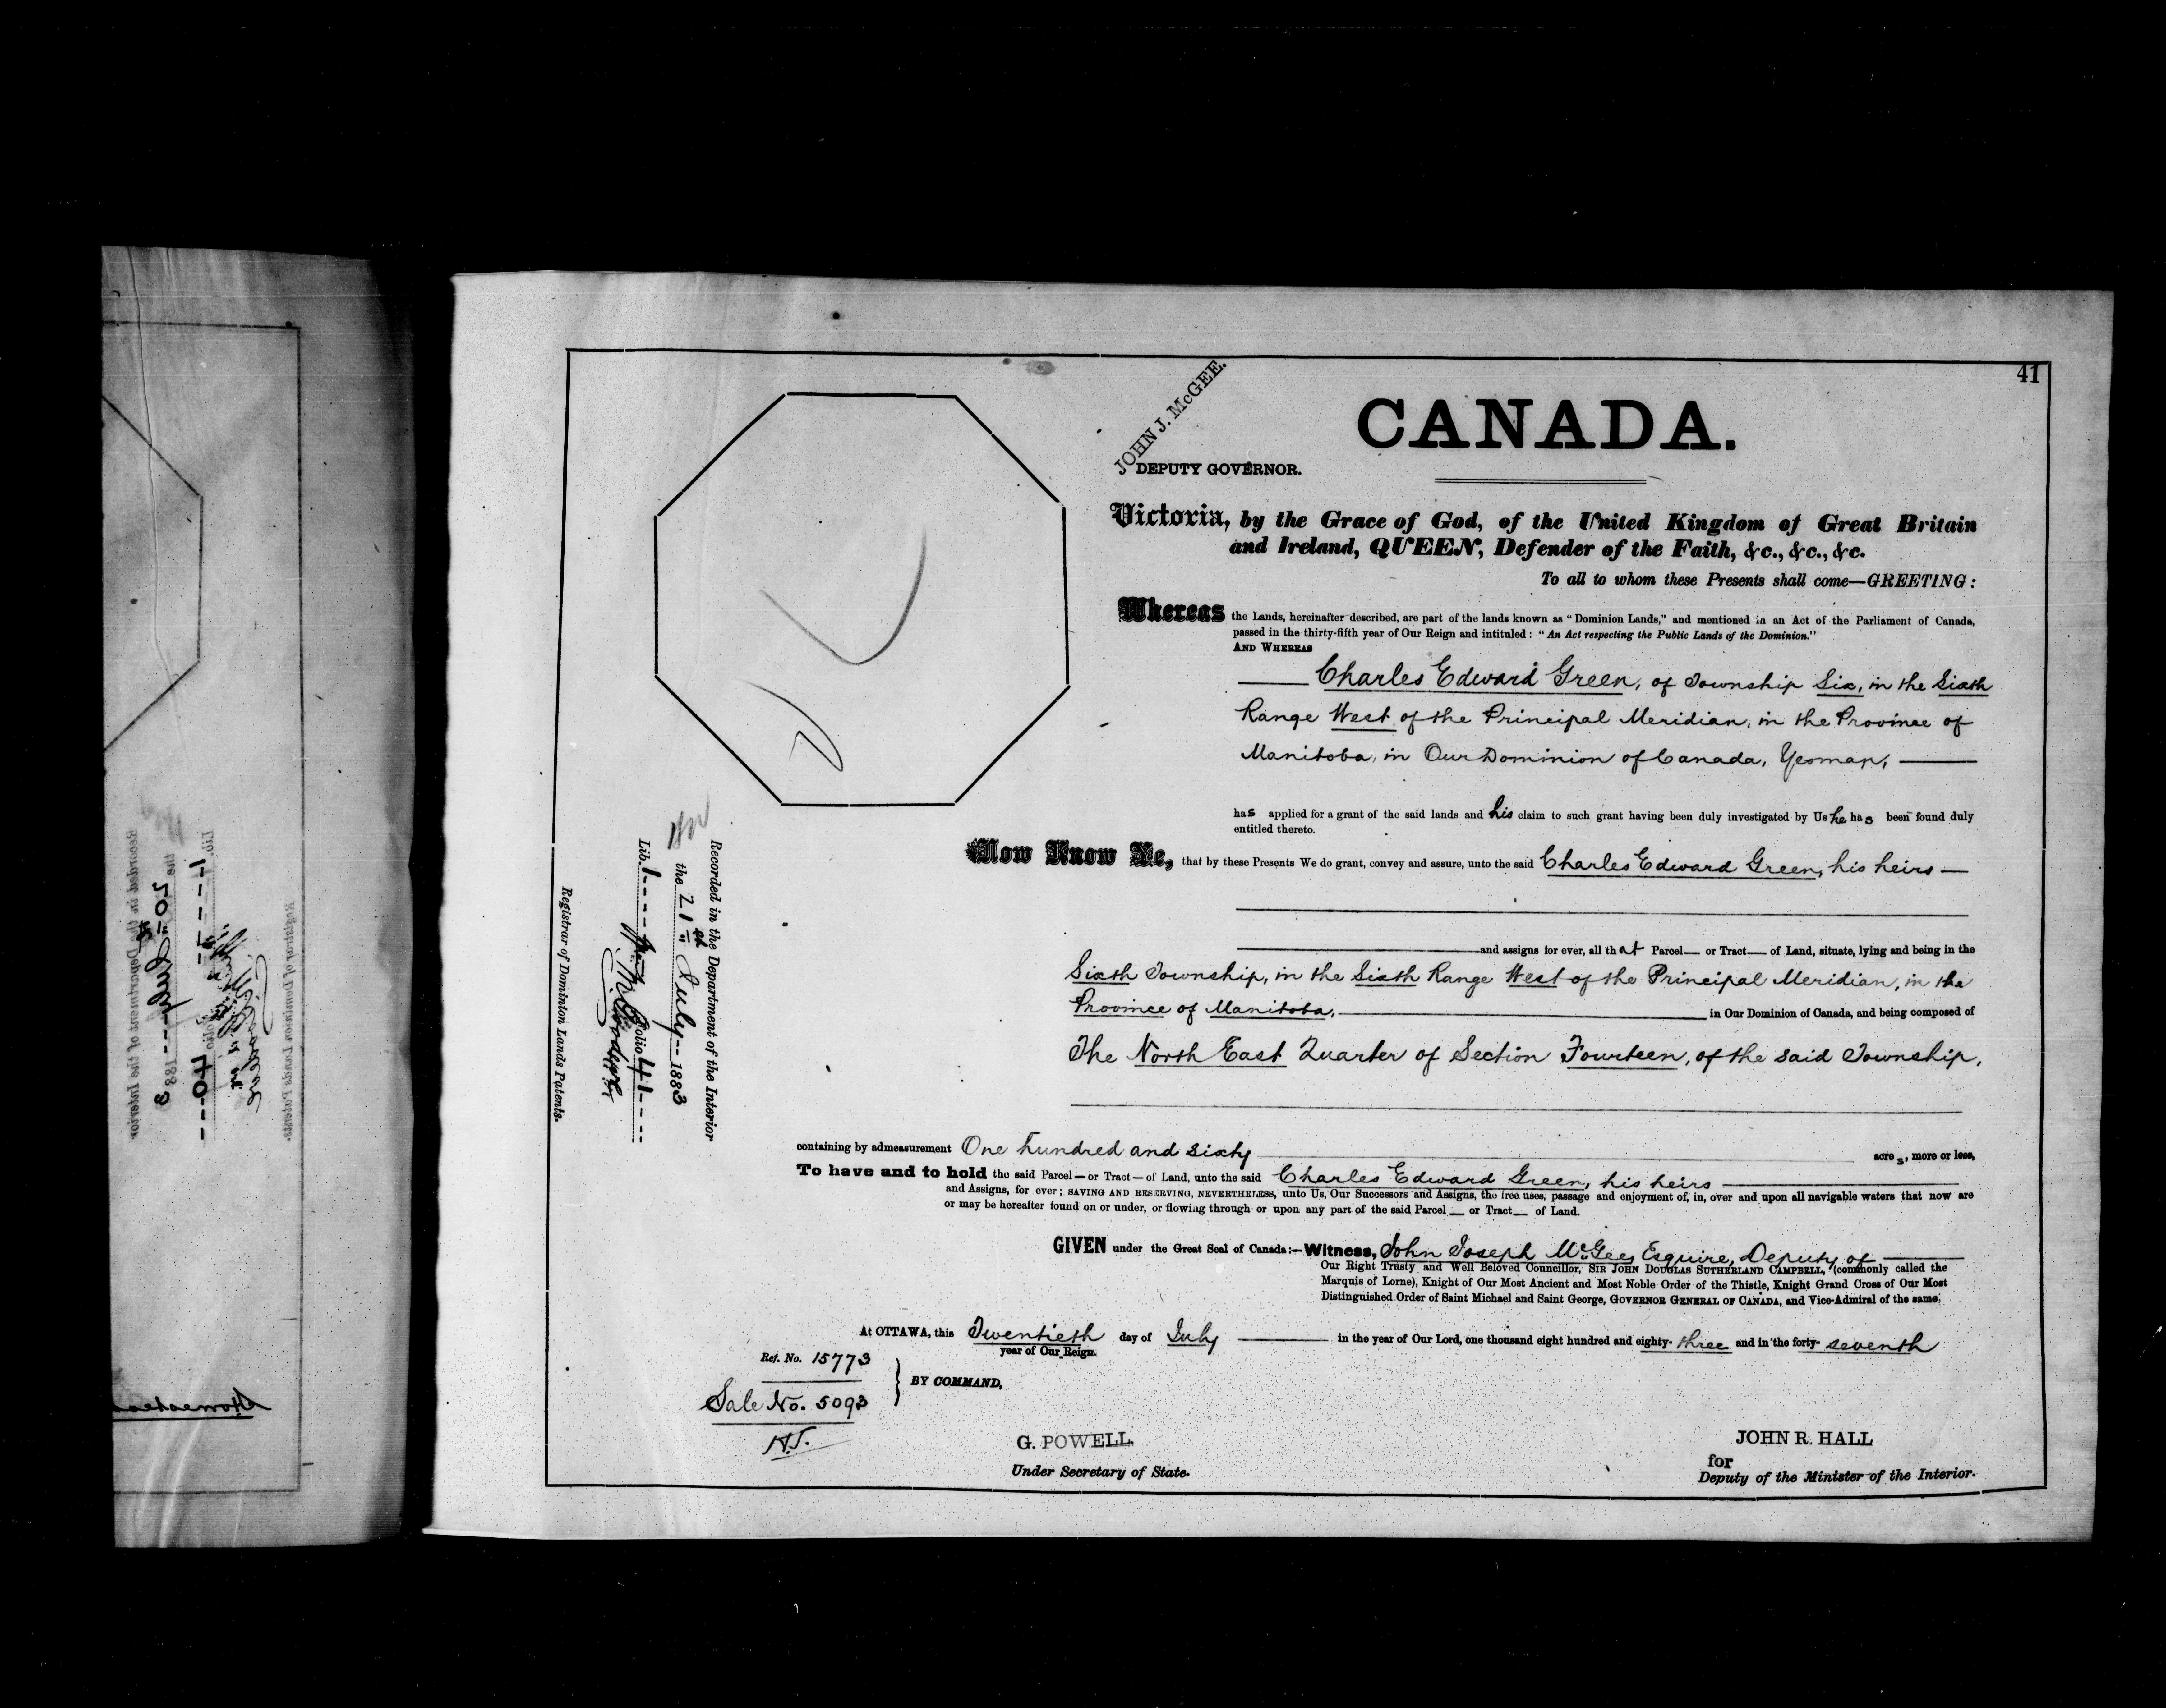 41
CANADA.
JOHN J. McGEE.
DEPUTY GOVERNOR.
Victoria, by the Grace of God, of the United Kingdom of Great Britain
and Ireland, QUEEN, Defender of the Faith, &c., &c., &c.
To all to whom these Presents shall come—GREETING:
Whereas the Lands, hereinafter described, are part of the lands known as "Dominion Lands," and mentioned in an Act of the Parliament of Canada,
passed in the thirty-fifth year of Our Reign and intituled: "An Act respecting the Public Lands of the Dominion."
AND WHEREAS
Charles Edward Green, of Township Six, in the Sixth
Range West of the Principal Meridian, in the Province of
Manitoba, in Our Dominion of Canada, Yeoman,
has applied for a grant of the said lands and his claim to such grant having been duly investigated by Us he has been found duly
entitled thereto.
Now Know Ye, that by these Presents We do grant, convey and assure, unto the said Charles Edward Green, his heirs —
and assigns for ever, all that Parcel— or Tract— of Land, situate, lying and being in the
Sixth Township, in the Sixth Range West of the Principal Meridian, in the
Province of Manitoba, in Our Dominion of Canada, and being composed of
The North East Quarter of Section Fourteen, of the said Township,
containing by admeasurement One hundred and sixty acres, more or less,
To have and to hold the said Parcel — or Tract — of Land, unto the said Charles Edward Green, his heirs
and Assigns, for ever; SAVING AND RESERVING, NEVERTHELESS, unto Us, Our Successors and Assigns, the free uses, passage and enjoyment of, in, over and upon all navigable waters that now are
or may be hereafter found on or under, or flowing through or upon any part of the said Parcel — or Tract — of Land.
GIVEN under the Great Seal of Canada:—Witness, John Joseph McGee, Esquire, Deputy of
Our Right Trusty and Well Beloved Councillor, SIR JOHN DOUGLAS SUTHERLAND CAMPBELL, (commonly called the
Marquis of Lorne), Knight of Our Most Ancient and Most Noble Order of the Thistle, Knight Grand Cross of Our Most
Distinguished Order of Saint Michael and Saint George, GOVERNOR GENERAL OF CANADA, and Vice-Admiral of the same.
At OTTAWA, this Twentieth day of July in the year of Our Lord, one thousand eight hundred and eighty-three and in the forty-seventh
year of Our Reign.
Ref. No. 15773
Sale No. 5093
H.J.
BY COMMAND,
G. POWELL
Under Secretary of State.
JOHN R. HALL
for
Deputy of the Minister of the Interior.
Recorded in the Department of the Interior
the 21st July 1883
Lib. 1 Folio 41
Registrar of Dominion Lands Patents.